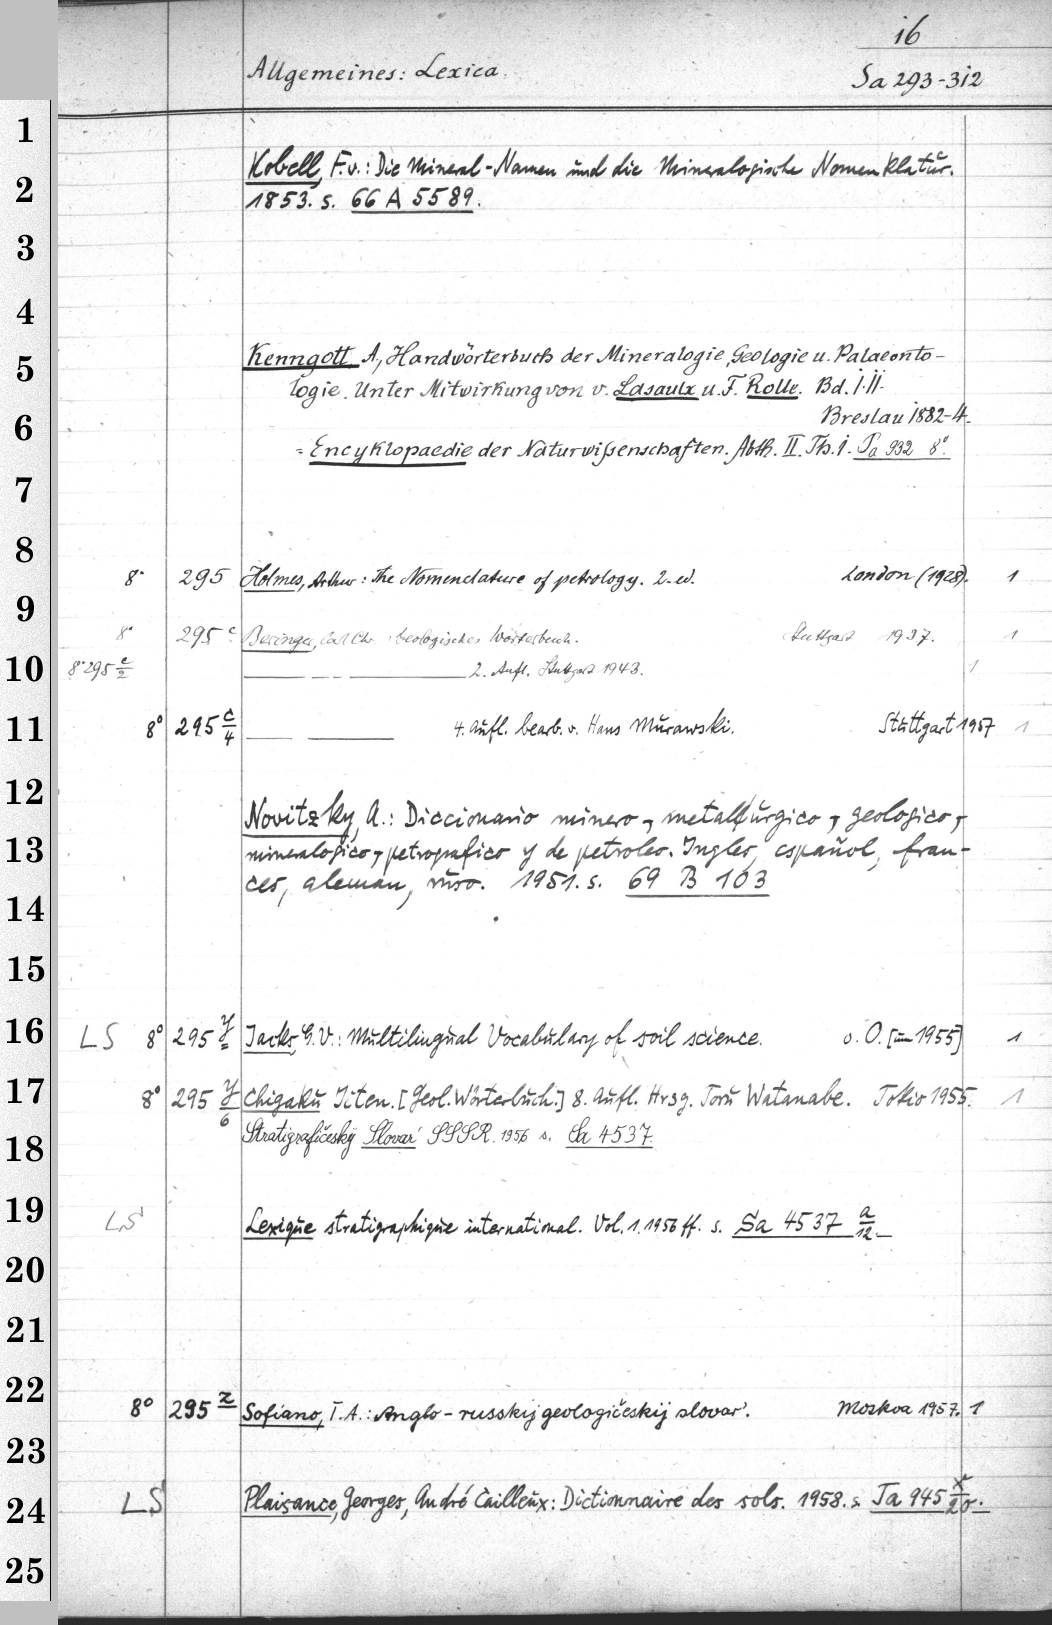 16
Allgemeines: Lexica.
Sa 293-312
Kobell, F.v.: Die Mineral-Namen und die Mineralogische Nomenklatur.
1853. s. 66 A 5589.
Kenngott, A, Handwörterbuch der Mineralogie, Geologie u. Palaeonto-
logie. Unter Mitwirkung von v. Lasaulx u. F. Rolle. Bd. I.II.
Breslau 1882-4.
= Encyklopaedie der Naturwißenschaften. Abth. II. Th. i. Pa 932 8°.
8° 295 Holmes, Arthur: The Nomenclature of petrology. 2. ed. London (1928). 1
8° 295 c Beringer, Carl Chr. Geologisches Wörterbuch. Stuttgart 1937. 1
8° 295 c/2 2. Aufl. Stuttgart 1943. 1
8° 295 c/4 4. Aufl. bearb. v. Hans Murawski. Stuttgart 1957 1
Novitzky, A.: Diccionario minero-, metallurgico-, geologico-,
mineralogico-, petrografico y de petroleo. Ingles, español, fran-
ces, aleman, ruso. 1951. s. 69 B 103
LS 8° 295 y Jacks, G.V.: Multilingual Vocabulary of soil science. o. O. [um 1955] 1
8° 295 y/6 Chigaku Jiten. [Geol. Wörterbuch.] 8. Aufl. Hrsg. Toru Watanabe. Tokio 1955. 1
Stratigrafičeskij Slovar' SSSR. 1956 s. Sa 4537
LS Lexique stratigraphique international. Vol. 1. 1956 ff. s. Sa 4537 a/12.
8° 295 z Sofiano, T.A.: Anglo-russkij geologičeskij slovar'. Moskva 1957. 1
LS Plaisance, Georges, André Cailleux: Dictionnaire des sols. 1958. s. Ta 945 x/20.
1
2
3
4
5
6
7
8
9
10
11
12
13
14
15
16
17
18
19
20
21
22
23
24
25